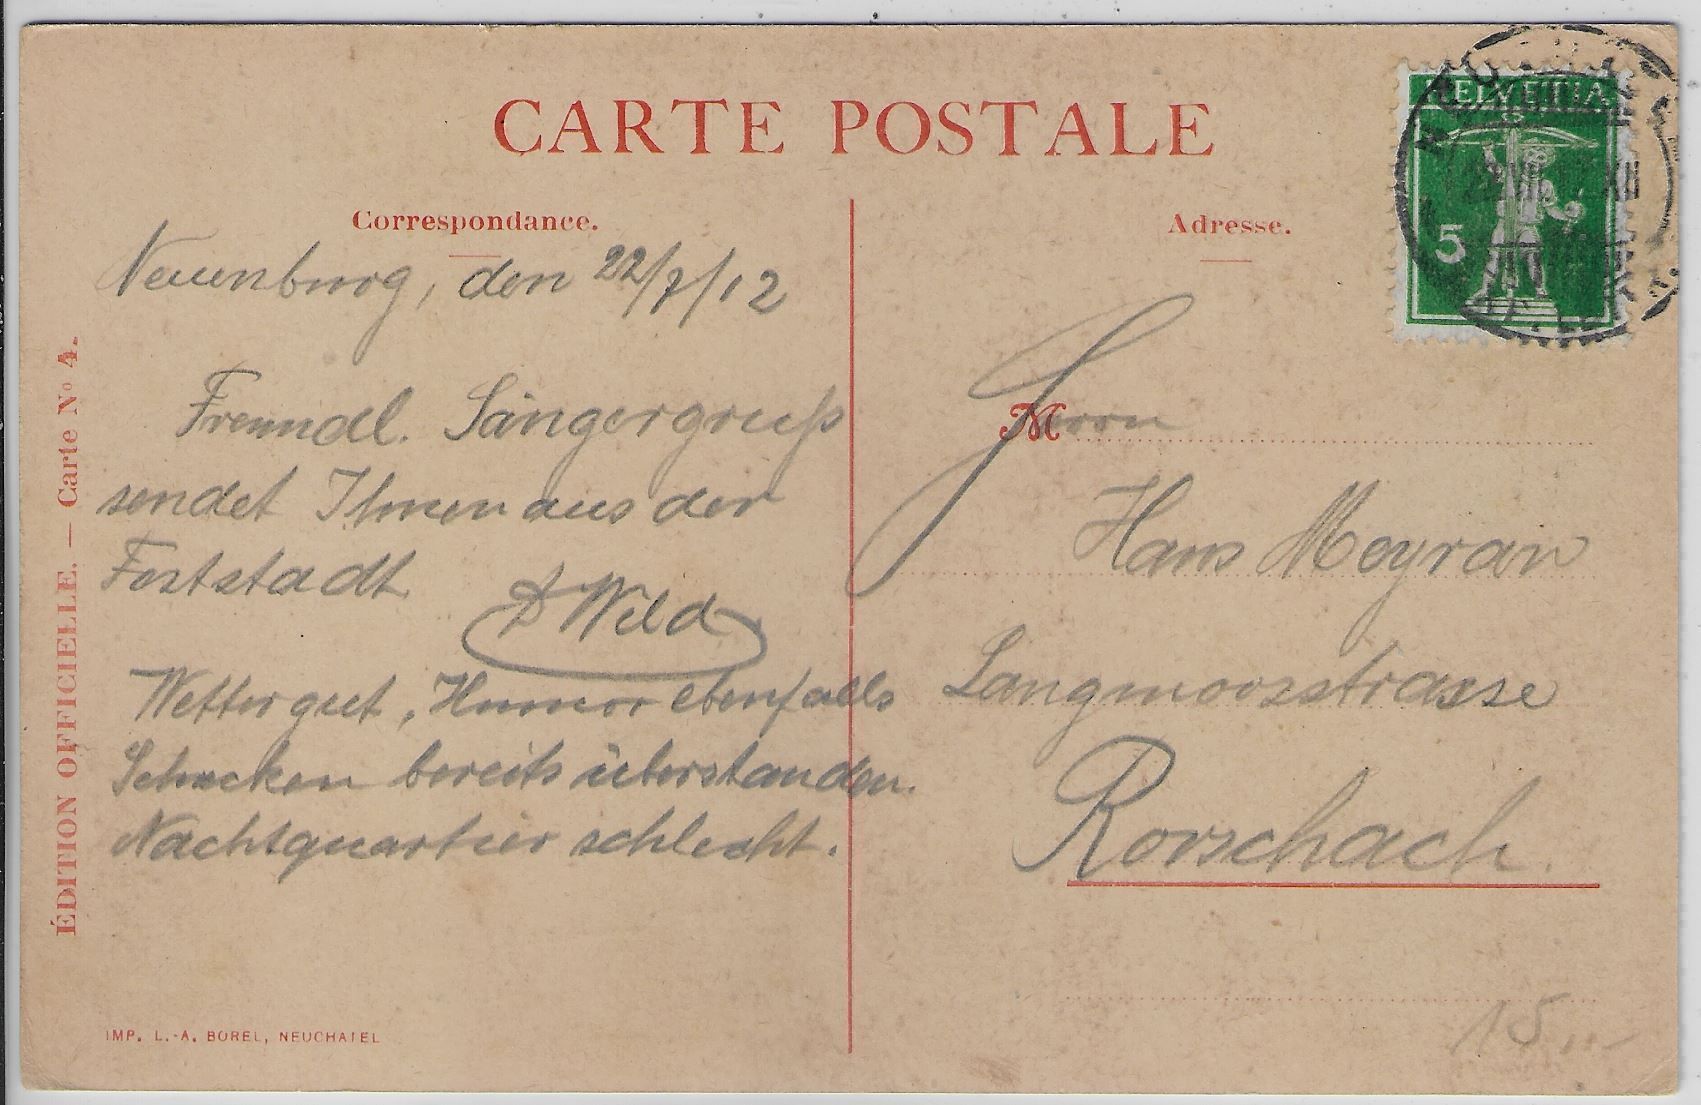 CARTE POSTALE
Correspondance.
Neuenburg, den 22/7/12
Freundl. Sängergruß
sendet Ihnen aus der
Feststadt
Wild
Wetter gut, Humor ebenfalls
bereits überstanden.
Nachtquartier schlecht.
ÉDITION OFFICIELLE. — Carte No 4.
IMP. L.-A. BOREL, NEUCHATEL
Adresse.
HELVETIA
5
M
Herrn
Hans Meyran
Langmoosstrasse
Rorschach.
15.--